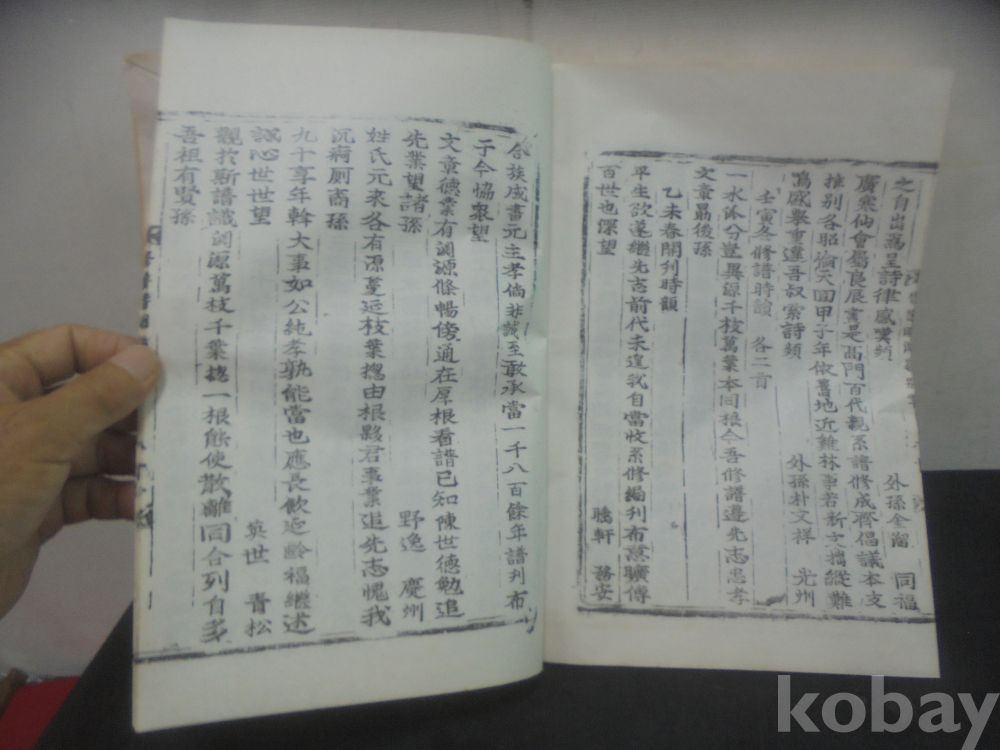 之自出焉呈詩律感實頌
外孫金溜 同福
廣寒仙會屬良辰實是高門百代親系譜修成齊倡議本支
推別各昭倫天回甲子年依舊地近雞林事若新文揚縱難
鳴盛擧重違吾叔索詩頻 外孫朴文祥 光州
壬寅冬修譜時韻 各二首
一水流分豈異源千枝萬葉本同根今吾修譜遵先志忠孝
文章勗後孫
乙未春開刊時韻
平生欲遂繼先志前代未遑我自當收系修編刊布意曠傳
百世也深望 聽軒 務安
合族成書元主孝倘非誠至敢承當一千八百餘年譜刊布
于今恊衆望
文章德業有淵源條暢傍通在厚根看譜已知陳世德勉追
先業望諸孫 野逸 慶州
姓氏元來各有源蔓延枝葉摠由根夥君事業追先志愧我
沉痾厠裔孫
九十享年幹大事如公純孝孰能當也應長飮延齡福繼述
誠心世世望 英世 青松
觀於斯譜識淵源萬枝千葉摠一根能使散離同合列自多
吾祖有賢孫
kobay